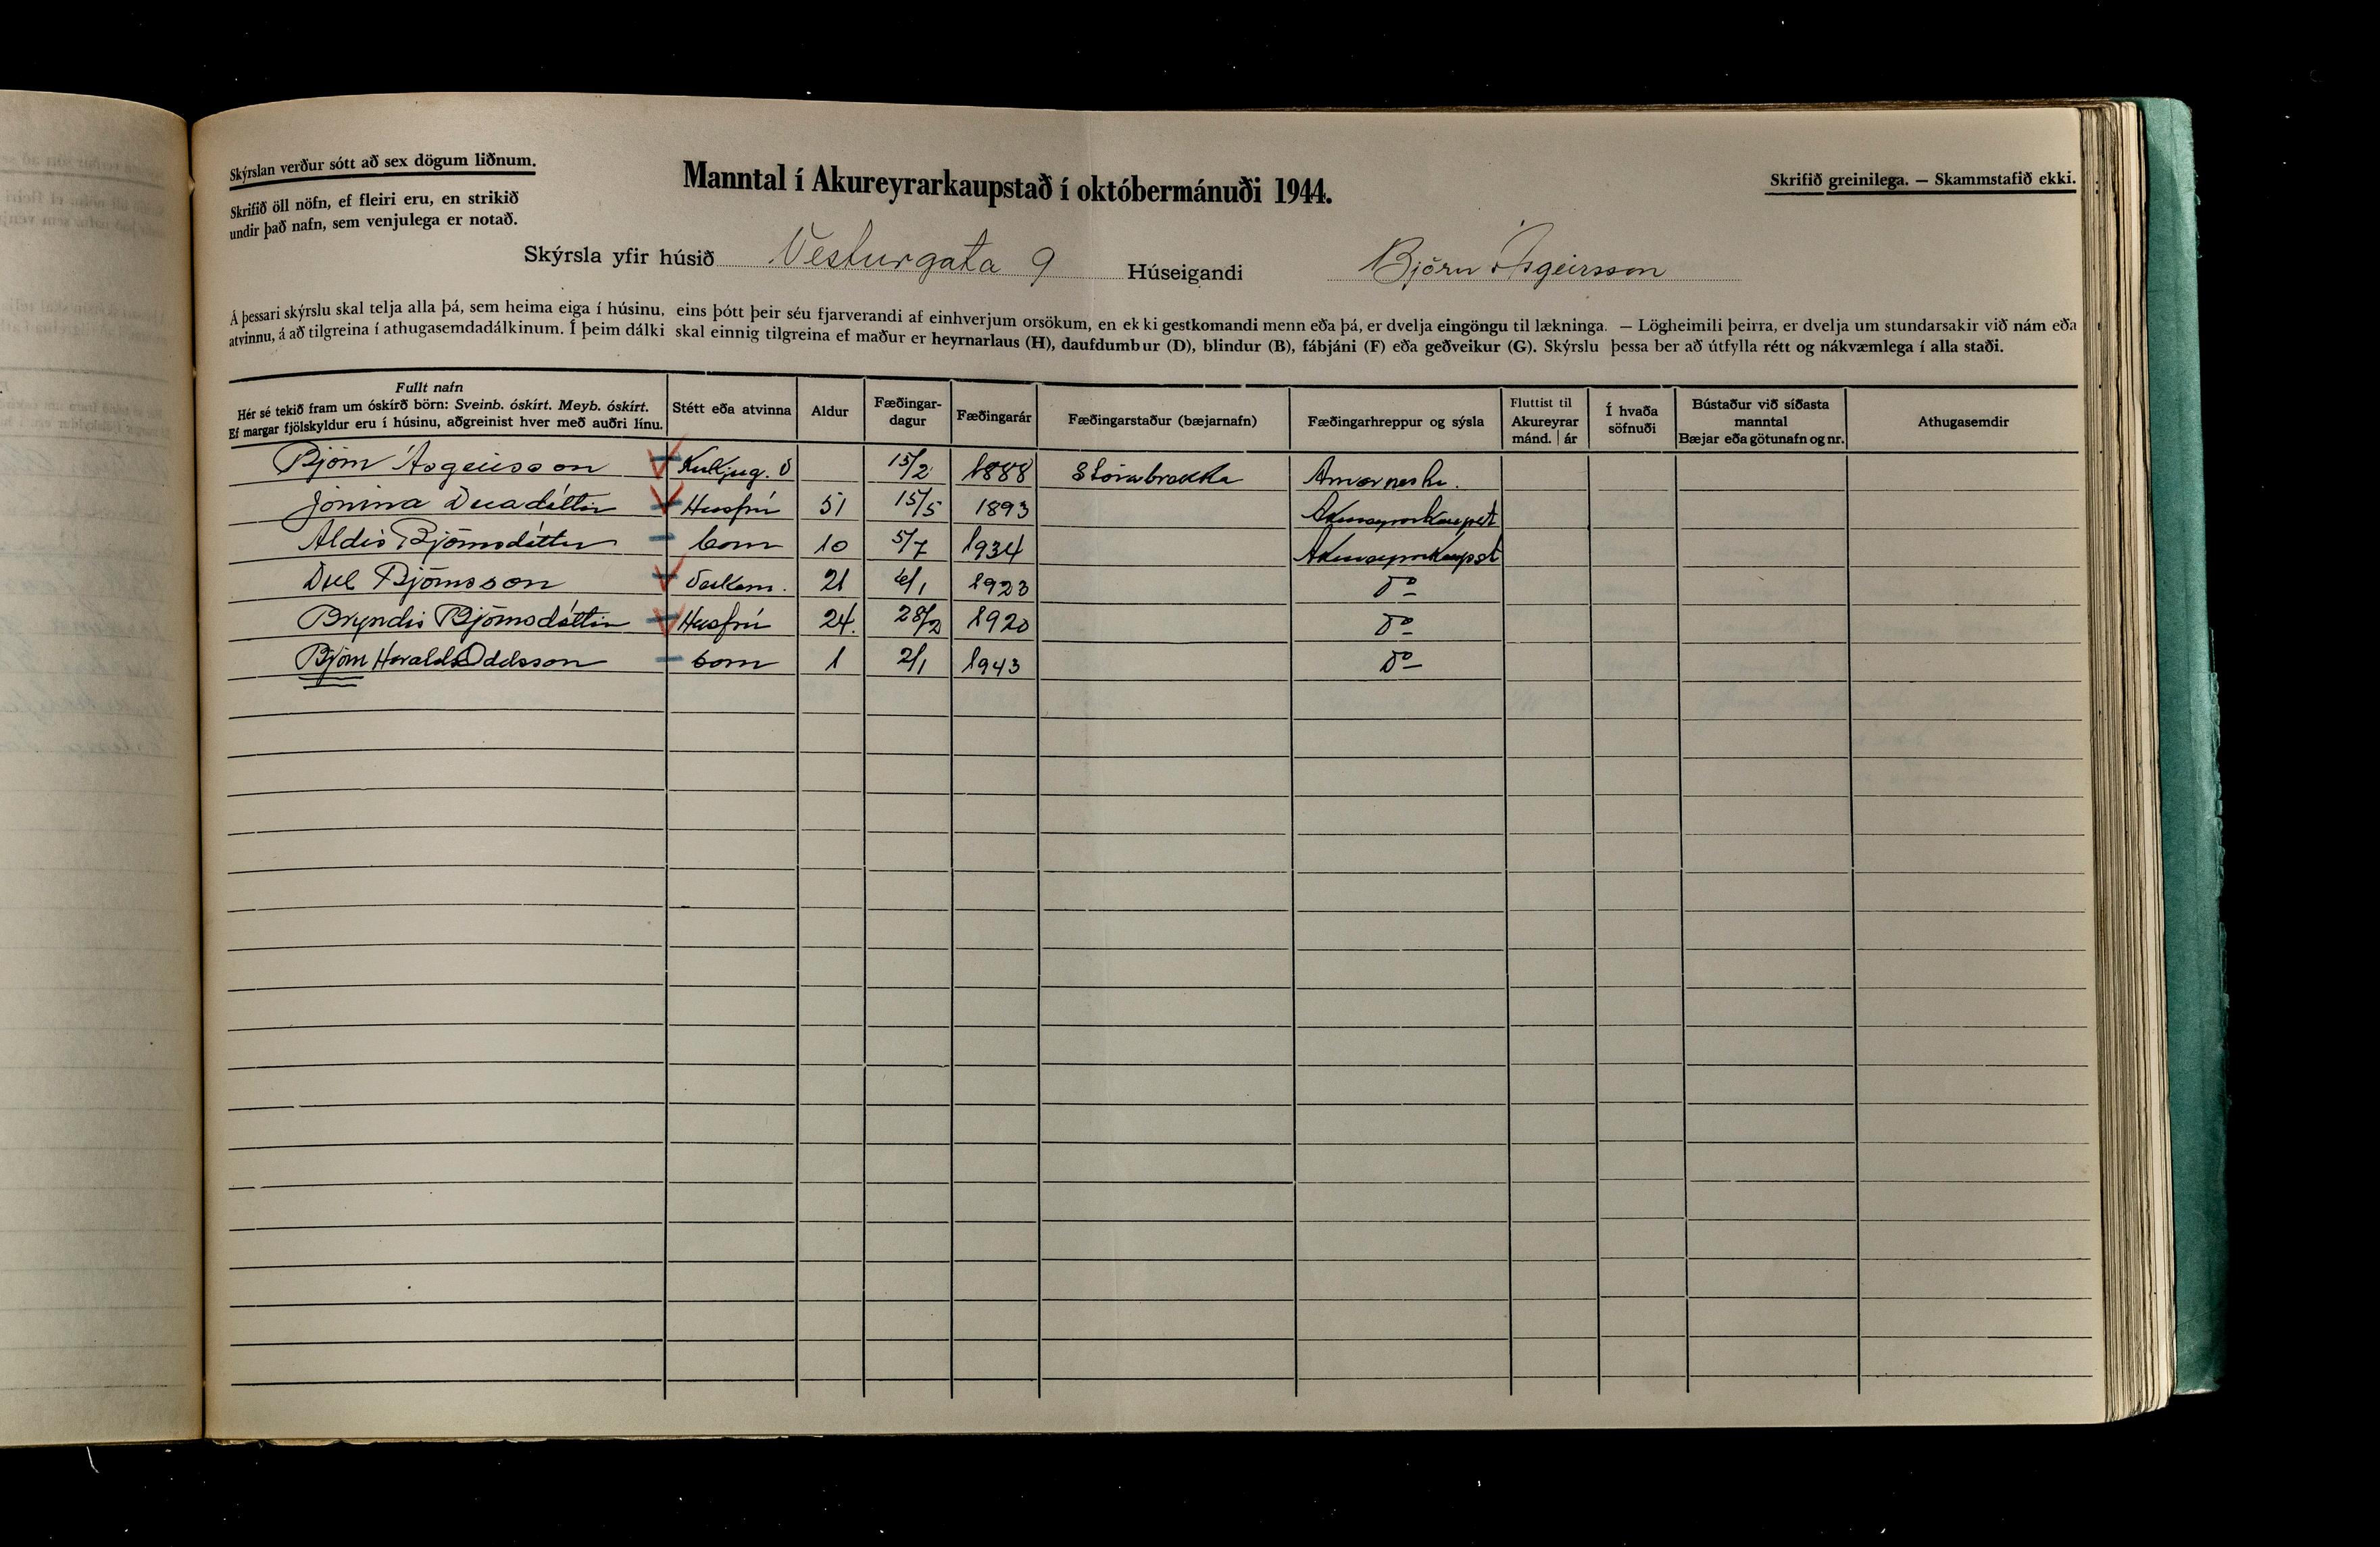 Skýrslan verður sótt að sex dögum liðnum.
Skrifið öll nöfn, ef fleiri eru, en strikið
undir það nafn, sem venjulega er notað.
Manntal í Akureyrarkaupstað í októbermánuði 1944.
Skrifið greinilega. — Skammstafið ekki.
Skýrsla yfir húsið Vesturgata 9 Húseigandi Björn Ásgeirsson
Á þessari skýrslu skal telja alla þá, sem heima eiga í húsinu, eins þótt þeir séu fjarverandi af einhverjum orsökum, en ekki gestkomandi menn eða þá, er dvelja eingöngu til lækninga. — Lögheimili þeirra, er dvelja um stundarsakir við nám eða
atvinnu, á að tilgreina í athugasemdadálkinum. Í þeim dálki skal einnig tilgreina ef maður er heyrnarlaus (H), daufdumbur (D), blindur (B), fábjáni (F) eða geðveikur (G). Skýrslu þessa ber að útfylla rétt og nákvæmlega í alla staði.
Fullt nafn
Hér sé tekið fram um óskírð börn: Sveinb. óskírt. Meyb. óskírt.
Ef margar fjölskyldur eru í húsinu, aðgreinist hver með auðri línu.
Stétt eða atvinna
Aldur
Fæðingar-
dagur
Fæðingarár
Fæðingarstaður (bæjarnafn)
Fæðingarhreppur og sýsla
Fluttist til
Akureyrar
mánd. | ár
Í hvaða
söfnuði
Bústaður við síðasta
manntal
Bæjar eða götunafn og nr.
Athugasemdir
Björn Ásgeirsson 15/2 1888 Stórabrekka Arnarneshr.
Jónína Húsfrú 51 15/5 1893 Akureyrarkaupst
Aldís Björnsdóttir barn 10 5/7 1934 Akureyrarkaupst
Björnsson 21 6/1 1923 do
Bryndís Björnsdóttir Húsfrú 24. 28/2 1920 do
Björn Haralds Odelsson barn 1 2/1 1943 do